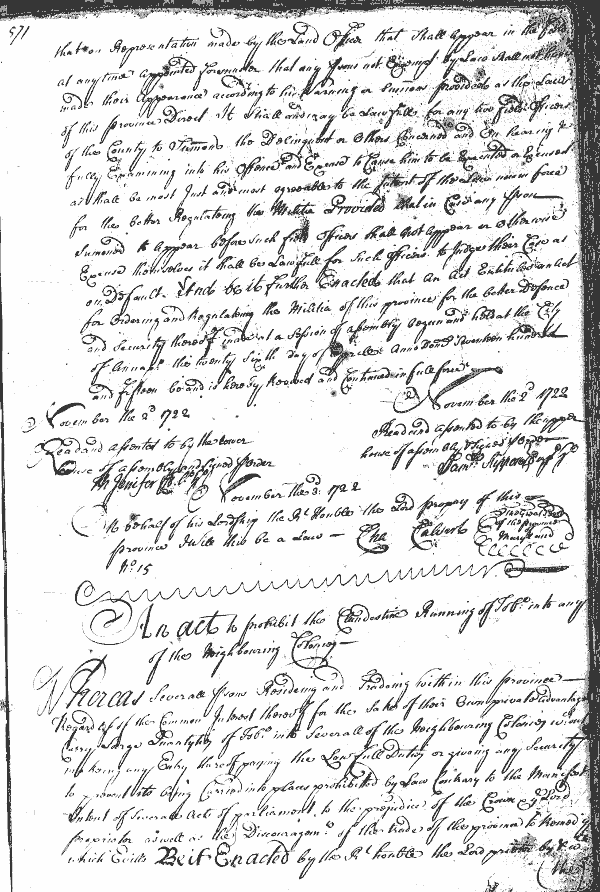 571
that on Representation made by the Land Officer that shall appear in the
at any time appointed to muster that any prsons not Exempt by Law shall not have
made their Appearance according to his Warning or Sumons provided as the Law
of this province Direct It shall and may be Lawfull for any two field Officers
of the County to Sumons the Delinquent or Others Concerned and on hearing &
fully Examining into his Offence and Excuse to Cause him to be Executed or Excused
as shall be most Just and most agreeable to the Intent of the Law now in force
for the better Regulateing the Militia Provided that in Case any prson
Sumoned to Appear before such field Officers shall not Appear or Otherwise
Excuse themselves it shall be Lawfull for such Officers to Judge their Case as
on Default. And be it further Enacted that An Act Entituled an Act
for Ordering and Regulateing the Militia of this province for the better Defence
and Security thereof made at a Session of assembly begun and held at the City
of Annaps the twenty Sixth day of Aprill Anno Domi Seventeen hundred
and fifteen be and is hereby Revived and Continued in full force
November the 2d 1722
Read and assented to by the Lower
house of assembly and signed Prder
M Jenifer Cl
November the 2d 1722
Read and assented to by the upper
house of assembly Signed Prder
Saml
November the 3: 1722
On behalf of his Lordship the Rt Honble the Lord propary of this
province I will this be a Law — Cha Calvert
The
of the province
Maryland
No: 15
An act to prohibit the Clandestine Running of Tobo into any
of the Neighbouring Colonies
Whereas Severall prsons Resideing and Tradeing within this province
Regardless of the Common Interest thereof for the Sake of their Own private Advantage
Carry Large Quantitys of Tobo into Severall of the Neighbouring Colonies without
making any Entry thereof paying the Lawfull Dutys or giving any Security
to prevent its being Carried into places prohibited by Law Contrary to the Manifest
Intent of Severall Acts of parliament to the prejudice of the Crown Lord
proprietor as well as the Discouragemt of the trade of this province to Remedy
which Evills Be it Enacted by the Rt honble the Lord by & wth
the